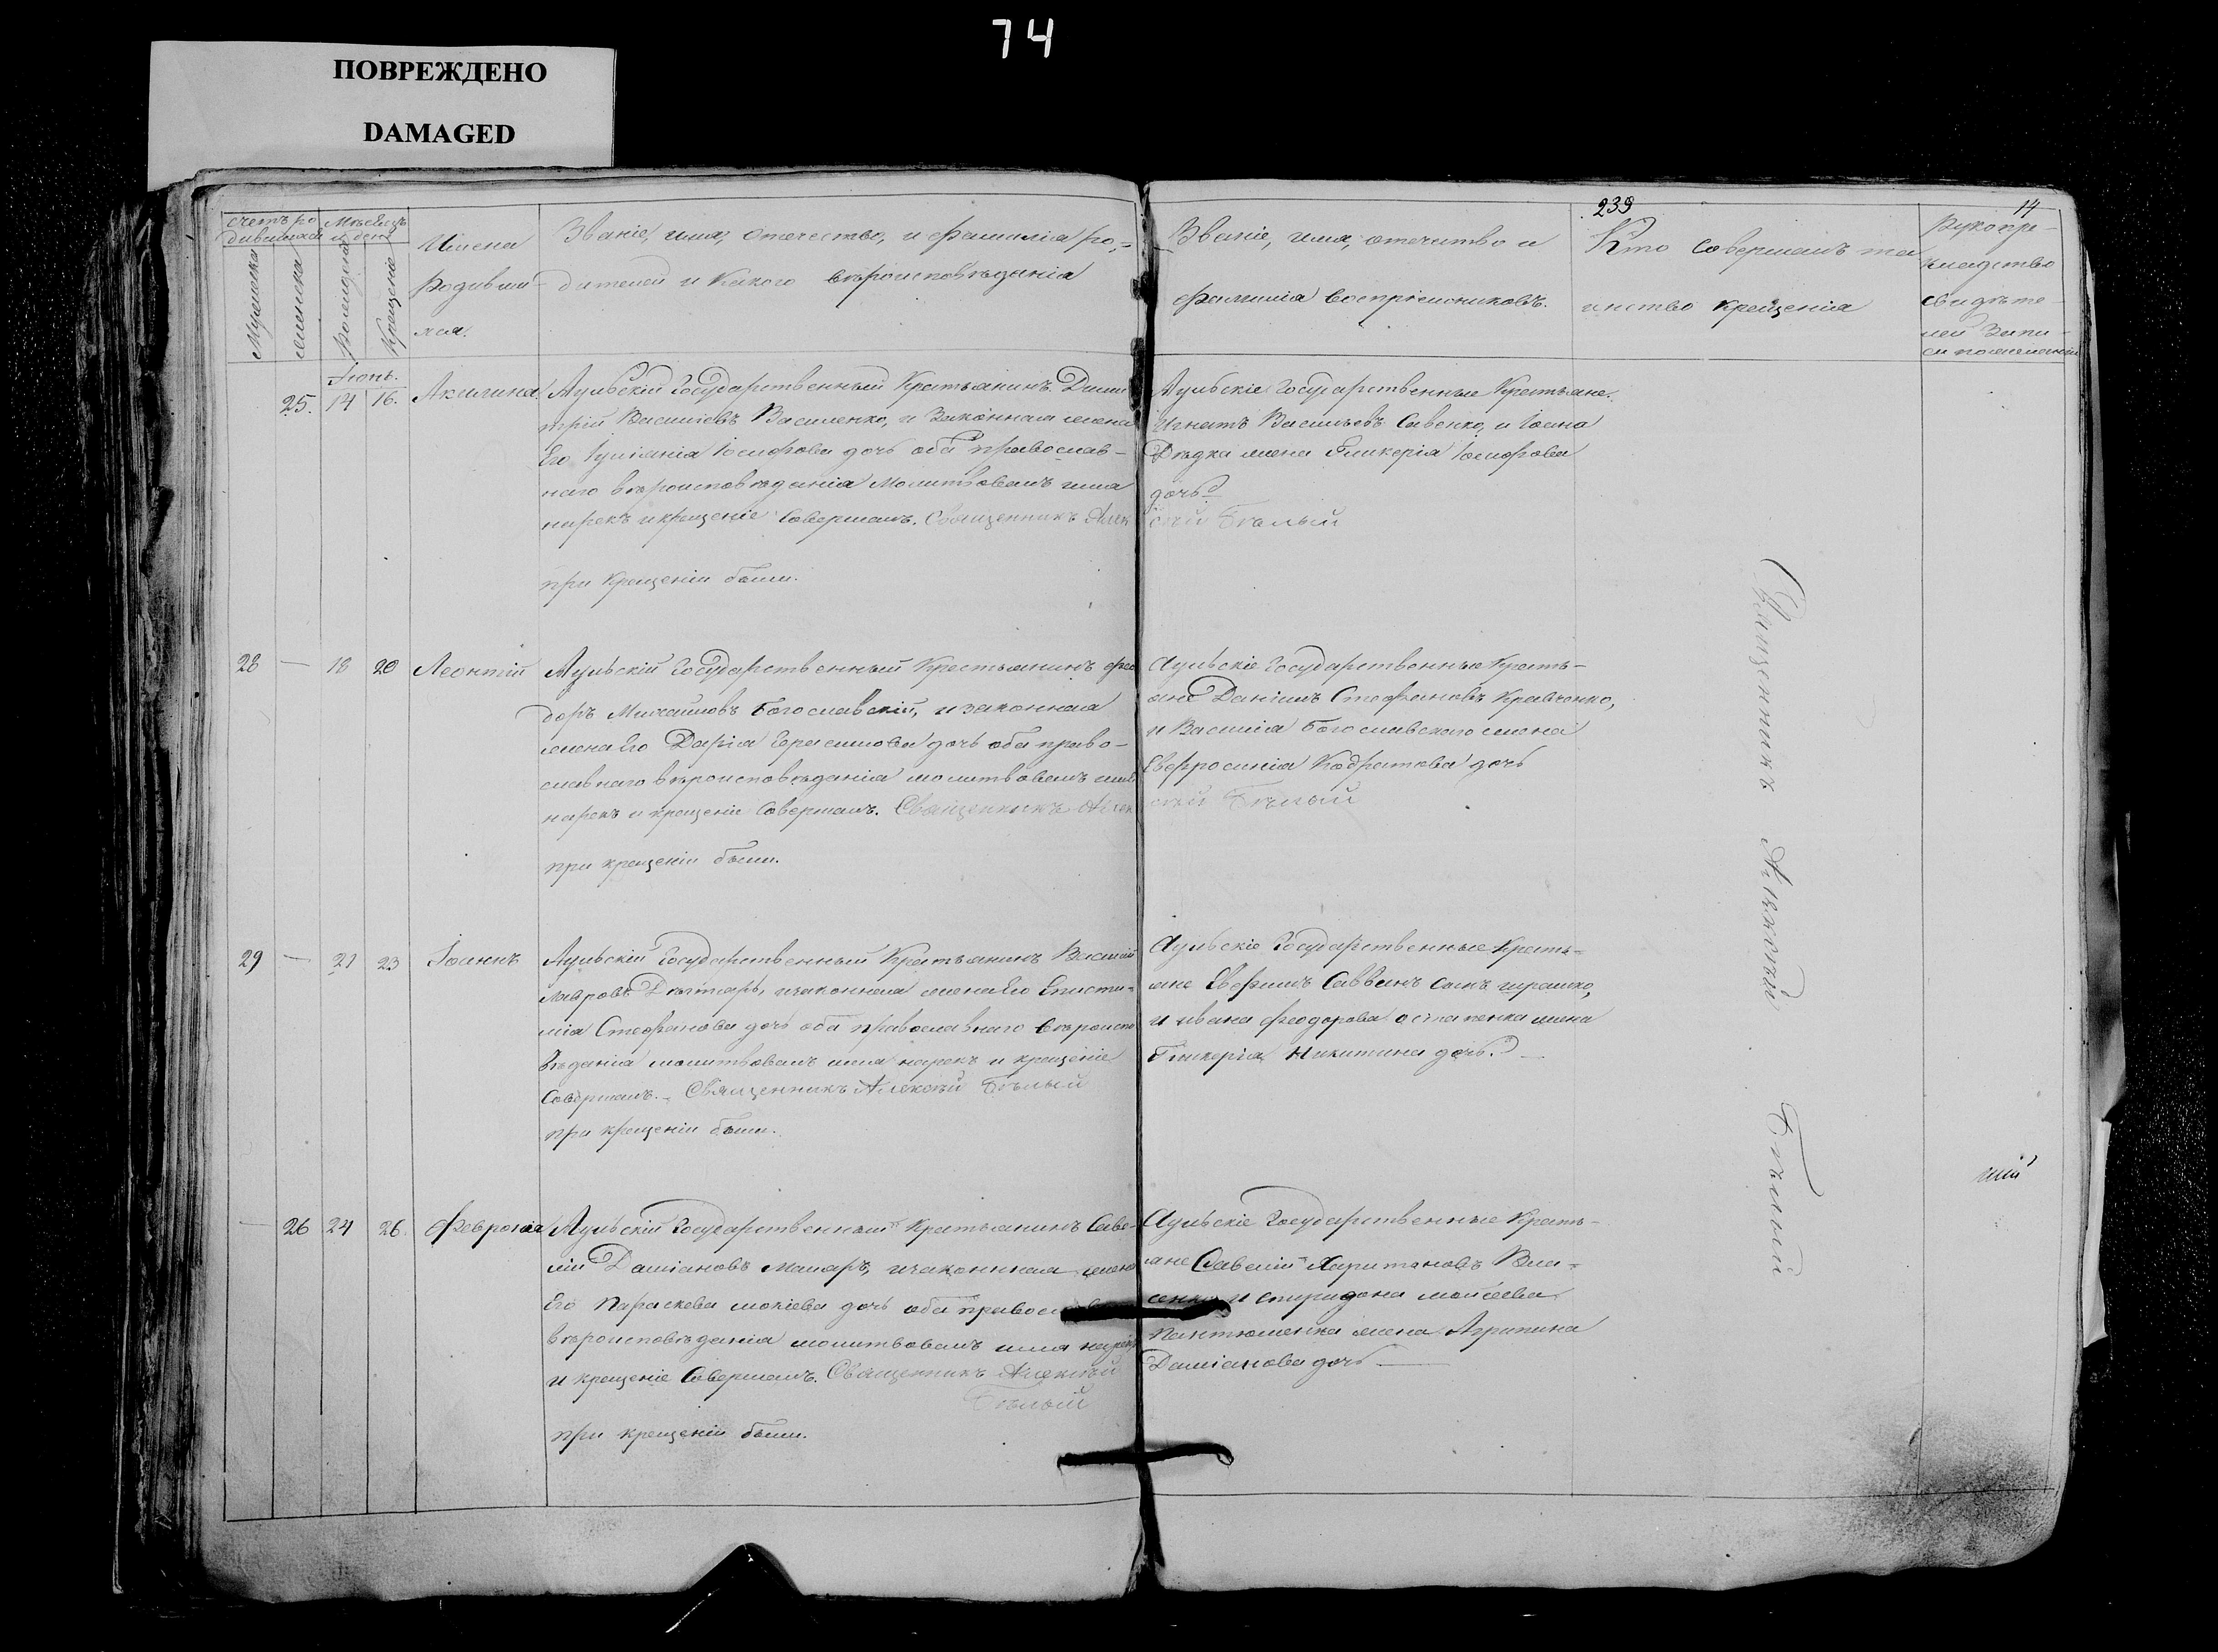 74
ПОВРЕЖДЕНО
DAMAGED
239
14
Счетъ ро
дившихся
Мѣсяцъ
и день
Мужеска
женска
Рожденія
Крещенія
Имена
Родивши-
хся.
Званіе, имя, отечество, и фамилія ро-
дителей и какого вѣроисповѣданія
Званіе, имя, отечитво и
фамилія воспріемниковъ.
Кто совершалъ та
инство крещенія
Рукопри-
кладство
свидѣте-
лей запи-
си пожеланію
Іюнь.
25. 14 16. Акилина
Аульскій Государственный Крестьянинъ Дими
трій Василіевъ Василенко, и Законная жена
Его Іуліанія Іосифова дочь оба православ-
наго вѣроисповѣданія Молитвовалъ имя
нарекъ и крещеніе совершалъ. Священникъ Алек
сѣй Бѣлый
при крещеніи были.
Аульскіе Государственные Крестьяне.
Игнатъ Васильевъ Савенко, и Іоана
Дѣдка жена Гликерія Іосифова
дочь
28 — 18 20 Леонтій
Аульскій Государственный Крестьянинъ Фео
доръ Михаиловъ Богославскій, и законная
жена Его Дарія Герасимова дочь оба право-
славнаго вѣроисповѣданія молитвовалъ имя
нарекъ и крещеніе совершалъ. Священникъ Алек
сѣй Бѣлый
при крещеніи были.
Аульскіе Государственные Кресть-
яне Даніилъ Стефановъ Кравченко,
и Василія Богославскаго жена
Евфросинія Кодратова дочь
29 — 21 23 Іоаннъ
Аульскій Государственный Крестьянинъ Василій
Лавровъ Дѣхтяръ, и законная жена Его Еписти-
мія Стефанова дочь оба православнаго вѣроиспо
вѣданія молитвовалъ имя нарекъ и крещеніе
совершалъ. Священникъ Алексѣй Бѣлый
при крещеніи были.
Аульскіе Государственные Кресть-
яне Евфимъ Саввинъ сынъ
и ивана Феодорова остапенка жена
Гликерія Никитина дочь.
— 26 24 26. Февронія
Аульскій Государственный Крестьянинъ Саве-
лій Даміановъ Маляръ, и законная жена
Его Параскева мокіева дочь оба
вѣроисповѣданія молитвовалъ имя нарекъ
и крещеніе совершалъ. Священникъ Алексѣй
Бѣлый
при крещеніи были.
Аульскіе Государственные Кресть-
яне Савелій Харитановъ Вла-
сенко и спиридона мойсѣева
Пантюменка жена Агрипина
Даміанова дочь
Священникъ Алексѣй Бѣлый